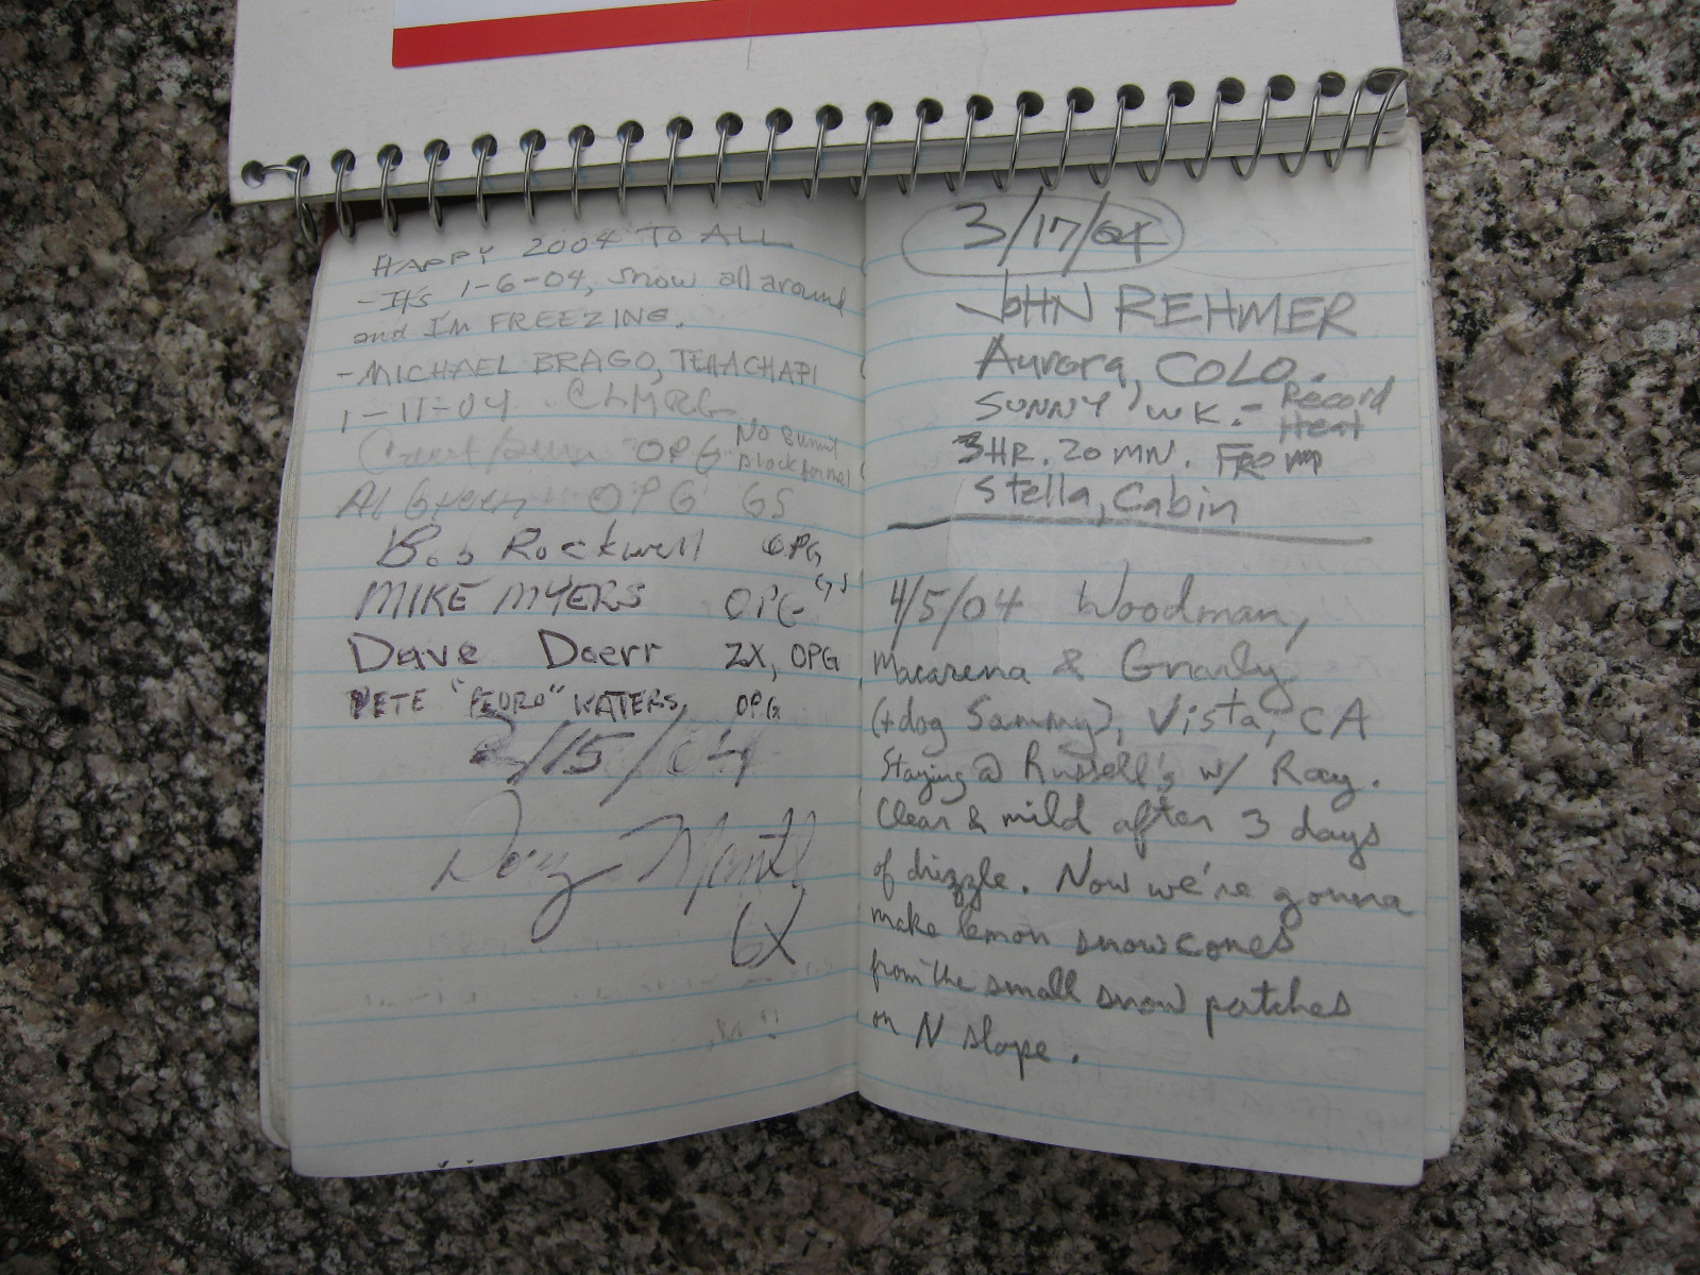 HAPPY 2004 TO ALL
- It's 1-6-04, snow all around
and I'm FREEZING.
- MICHAEL BRAGO, TEHACHAPI
1-11-04
OPG No
Al Green OPG GS
Bob Rockwell OPG
MIKE MYERS OPG GS
Dave Doerr 2X, OPG
PETE "PEDRO" WATERS, OPG
2/15/04
Doug Mantle
6X
3/17/04
JOHN REHMER
Aurora, COLO.
SUNNY, WK. - Record
Heat
3HR. 20 MN. FROM
Stella, Cabin
4/5/04 Woodman,
Macarena & Gnarly
(+dog Sammy), Vista, CA
Staying @ Russell's w/ Ray.
Clear & mild after 3 days
of drizzle. Now we're gonna
make lemon snowcones
from the small snow patches
on N slope.